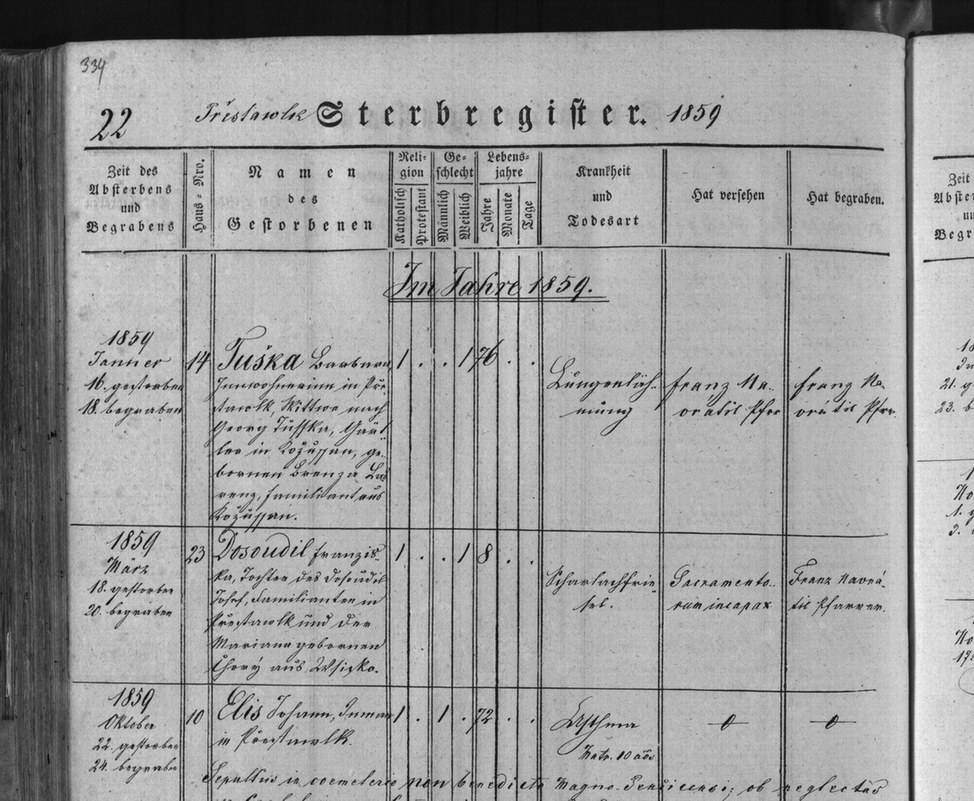 334
22 Přestawlk Sterbregister. 1859
Zeit des Absterbens und Begrabens
Haus-Nro.
Namen des Gestorbenen
Religion
Katholisch
Protestant
Geschlecht
Männlich
Weiblich
Lebensjahre
Jahre
Monate
Tage
Krankheit und Todesart
Hat versehen
Hat begraben.
Im Jahre 1859.
1859
Jänner
16. gestorben
18. begraben
14
Tuška Barbara,
Innwohnerinn in Přestawlk, Wittwe nach
Georg Tuška, Gärtler in Kožuschan, gebornen
Lorenz, Familiant aus
Kožuschan.
1 . . 1 76 . .
Lungenlähmung
Franz Navrátil Pfrr
Franz Navrátil Pfrr
1859
März
18. gestorben
20. begraben
23
Dosoudil Franziska,
Tochter des Dosoudil
Josef, Familianten in
Přestawlk und der
Mariana gebornen
Chorý aus Wsisko.
1 . . 1 8 . .
Scharlachfriesel.
Sacramentorum incapax
Franz Navrátil Pfarrer.
1859
Oktober
22. gestorben
24. begraben
10
Elis Johann, Inmann
in Přestawlk.
1 . 1 . 72 . .
Asthma
0
0
Sepultus in coemeterio non benedicto Magno ; ob neglectas